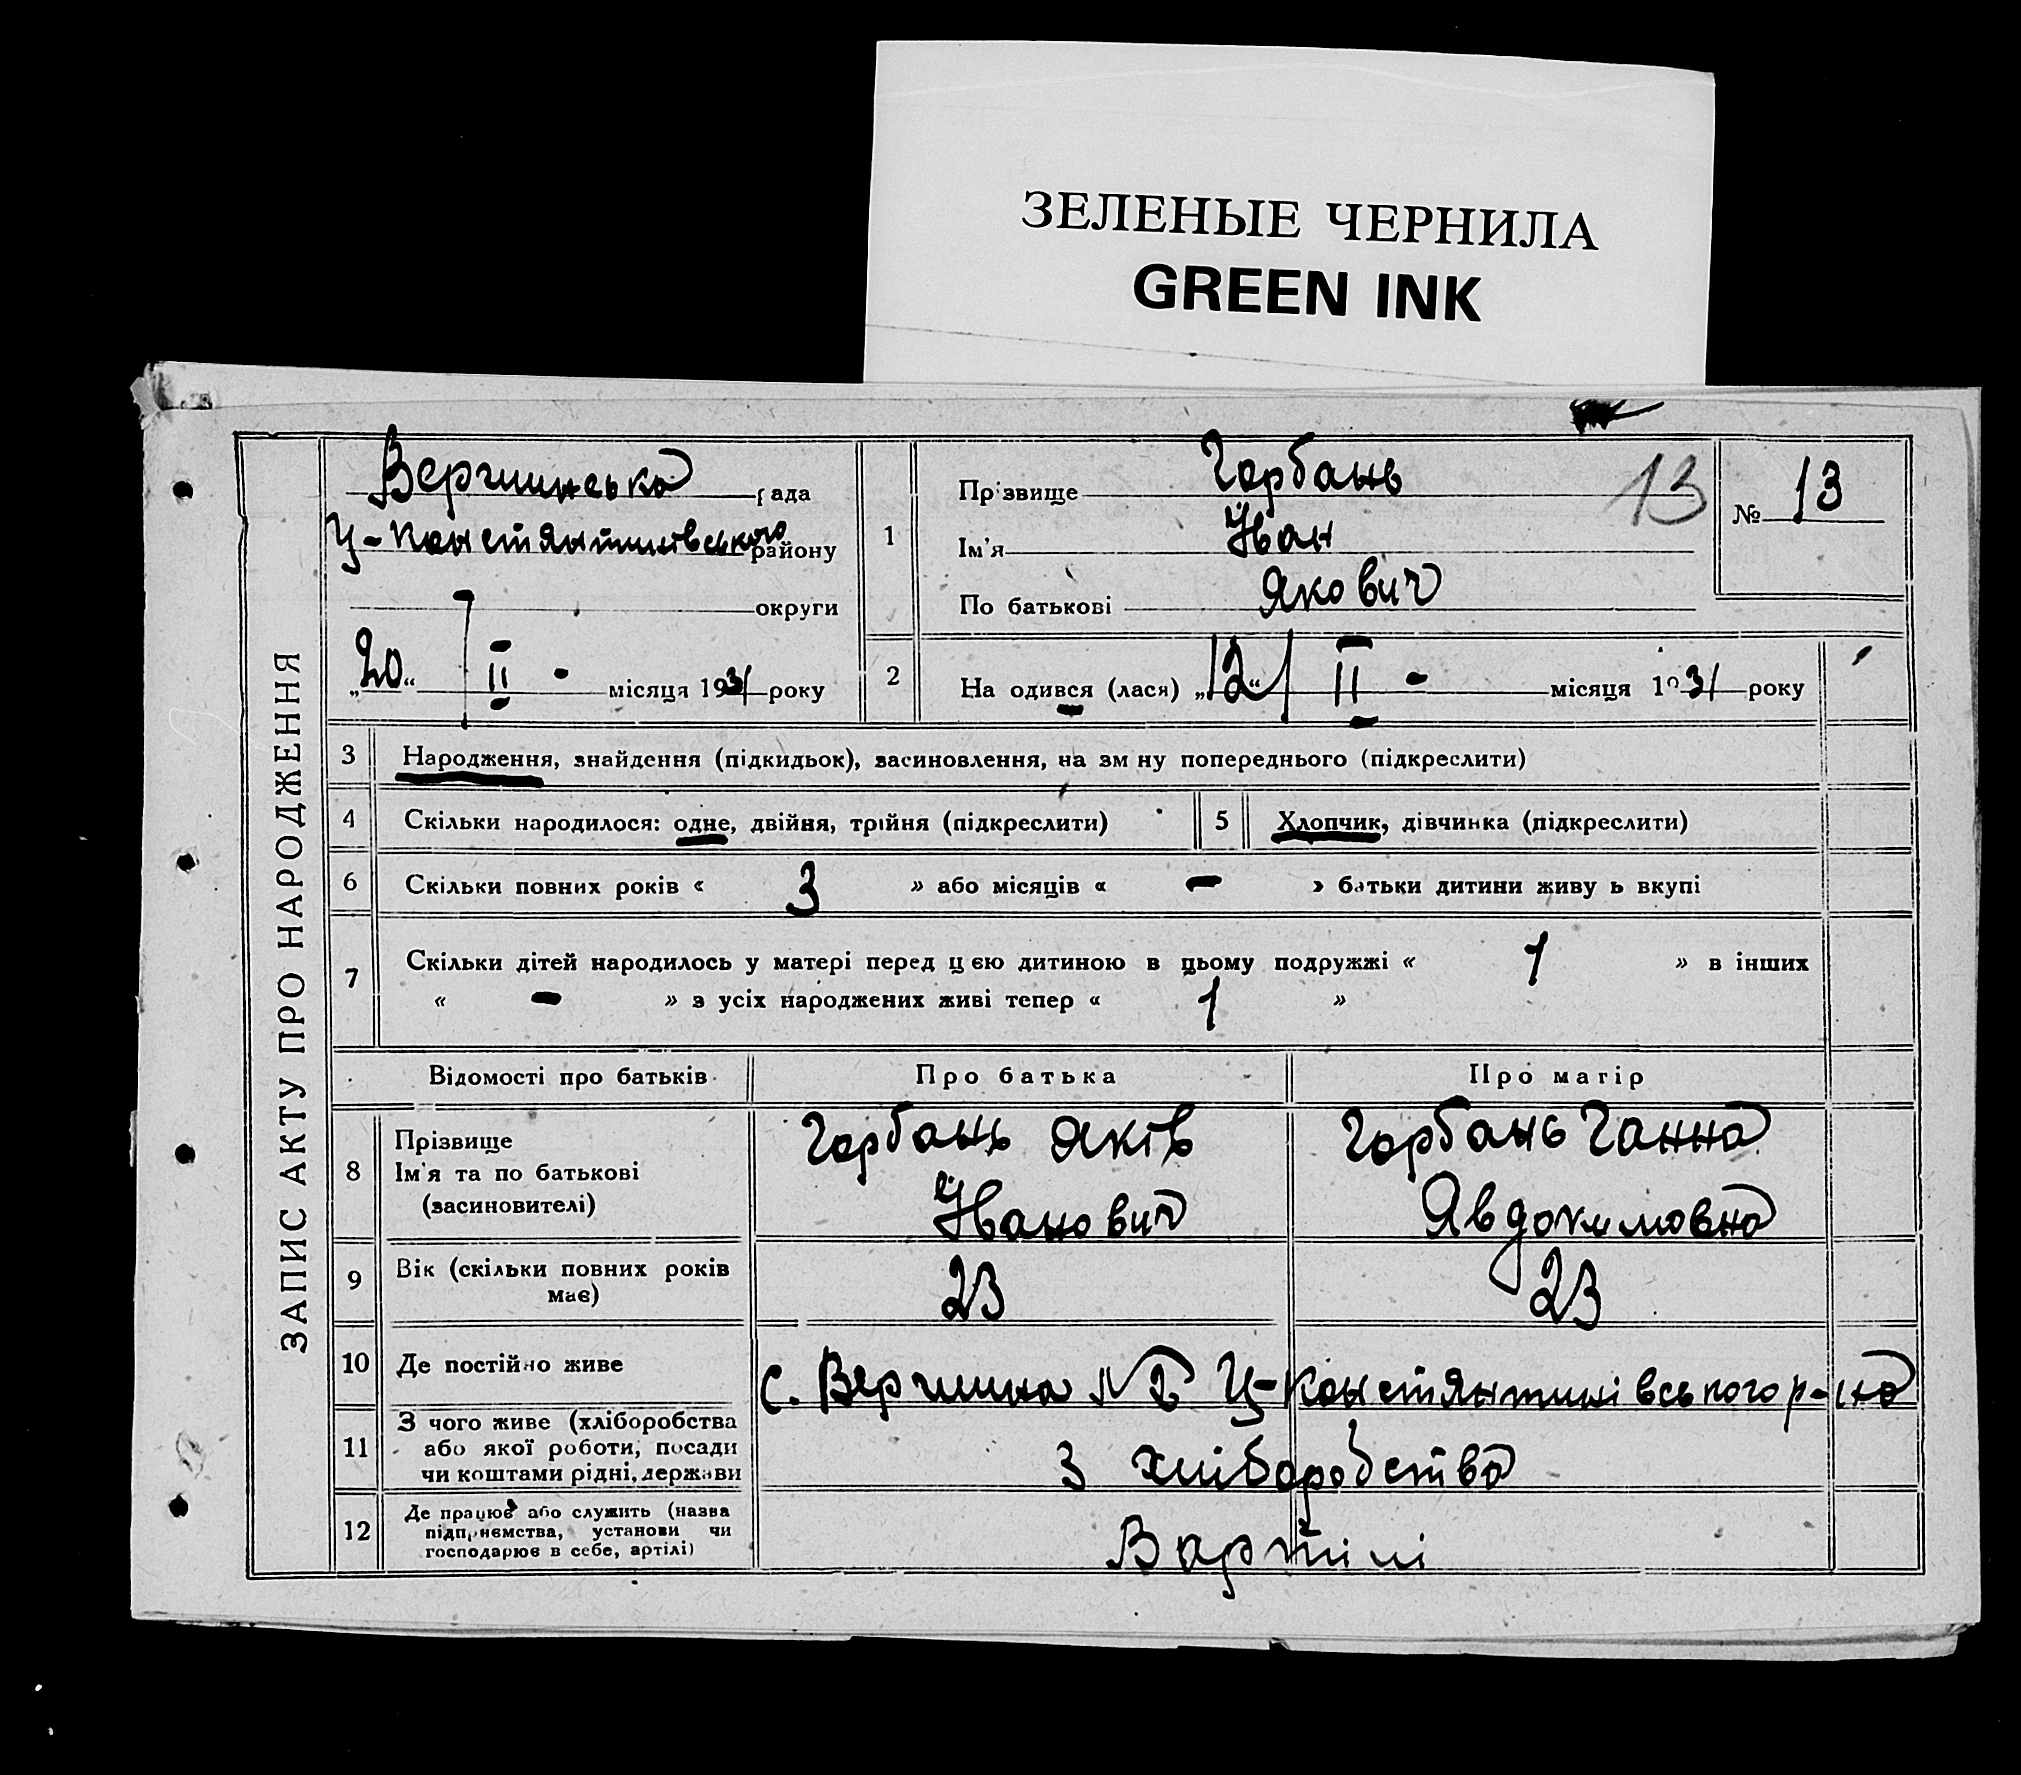 ЗЕЛЕНЫЕ ЧЕРНИЛА
GREEN INK
ЗАПИС АКТУ ПРО НАРОДЖЕННЯ
Вершинська рада
Ц-Констянтинівського району
округи
„20“ II - місяця 1931 року
1
Прізвище Горбань
Ім'я Іван
По батькові Якович
13
№ 13
2 Народився (лася) „12“ II - місяця 1931 року
3 Народження, знайдення (підкидьок), засиновлення, на зміну попереднього (підкреслити)
4 Скільки народилося: одне, двійня, трійня (підкреслити)
5 Хлопчик, дівчинка (підкреслити)
6 Скільки повних років « 3 » або місяців « - » батьки дитини живуть вкупі
7 Скільки дітей народилось у матері перед цією дитиною в цьому подружжі « 1 » в інших
« - » з усіх народжених живі тепер « 1 »
Відомості про батьків
Про батька
Про матір
8 Прізвище
Ім'я та по батькові
(засиновителі)
Горбань Яків
Іванович
Горбань Ганна
Явдокимовна
9 Вік (скільки повних років
має)
23
23
10 Де постійно живе
с. Вершина №2 Ц-Констянтинівського р-на
11 З чого живе (хліборобства
або якої роботи, посади
чи коштами рідні, держави
З хліборобства
12 Де працює або служить (назва
підприємства, установи чи
господарює в себе, артілі)
В артілі